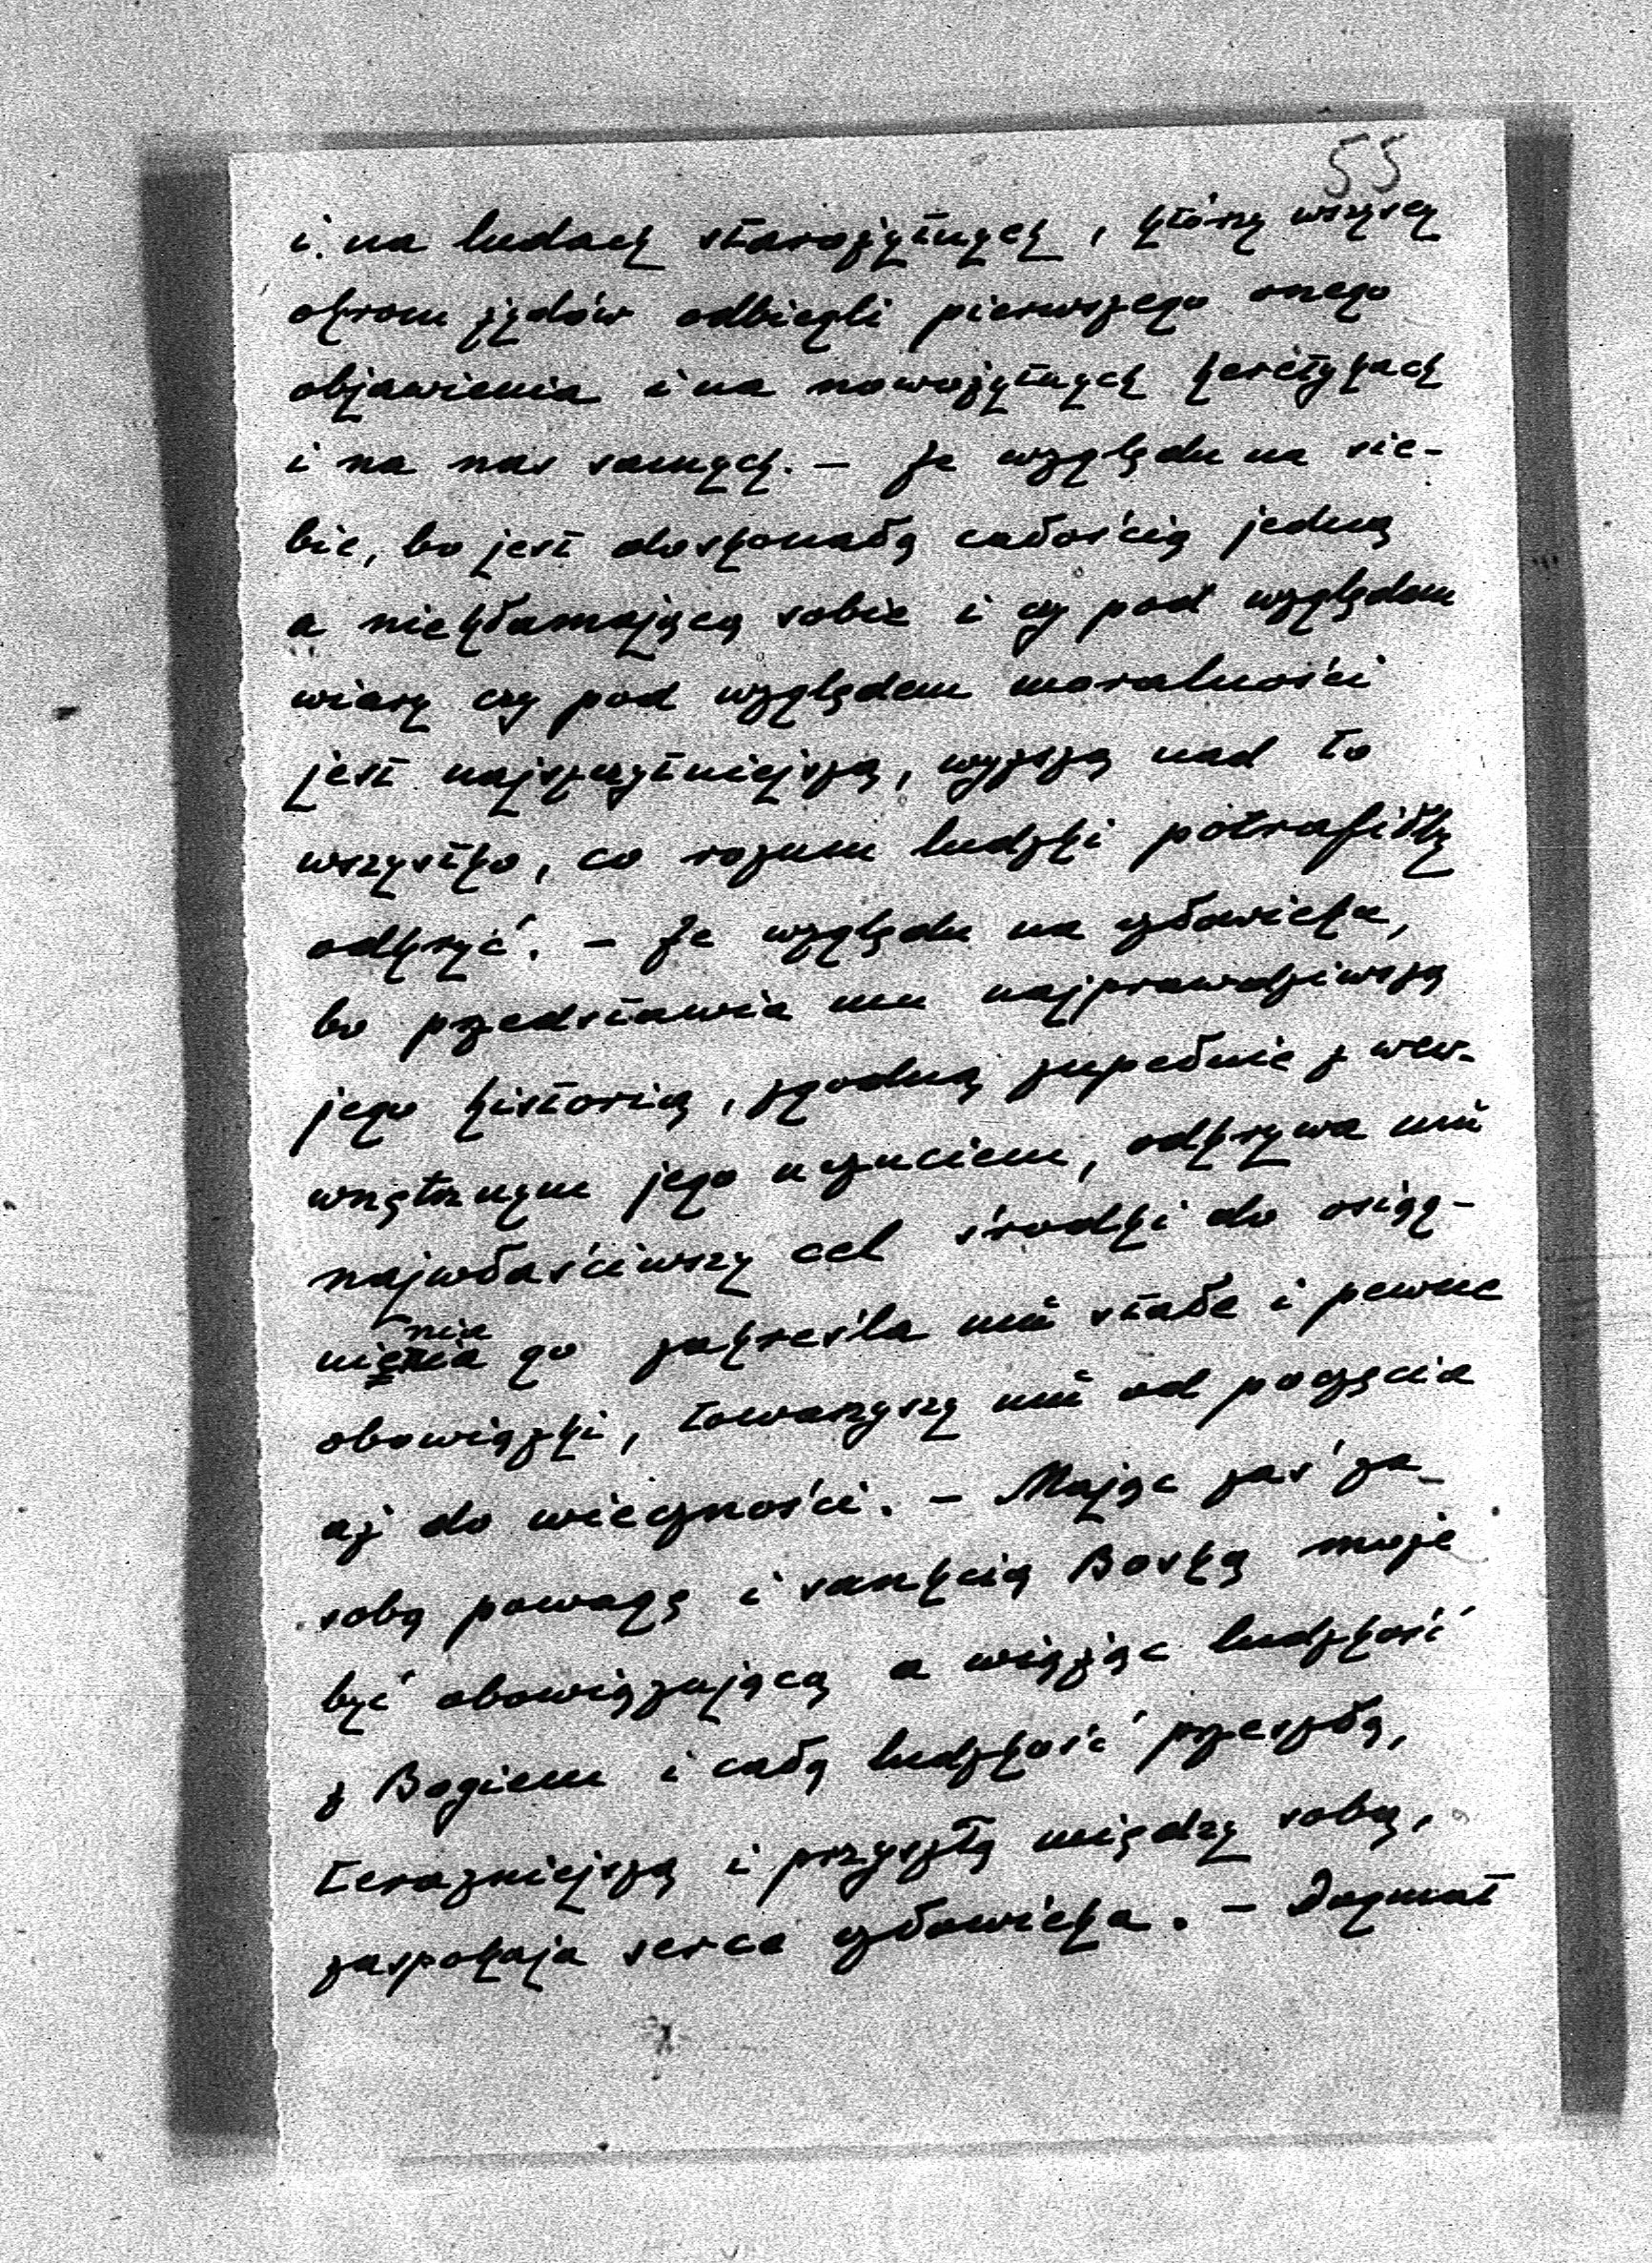 55
i na ludach starożytnych, którzy wszyscy
okrom żydów odbiegli pierwszego onego
objawienia i na nowożytnych heretykach
i na nas samych. – Ze względu na sie-
bie, bo jest doskonałą całością jedną
a niekłamającą sobie i czy pod względem
wiary czy pod względem moralności
jest najszczytniejszą, wyższą nad to
wszystko, co rozum ludzki potrafiłby
odkryć. – Ze względu na człowieka,
bo przedstawia mu najprawdziwszą
jego historią, zgodną zupełnie z wew-
wnętrznym jego uczuciem, odkrywa mu
najwłaściwszy cel środki do osiąg-
nięnia go zakreśla mu stałe i pewne
nia
obowiązki, towarzyszy mu od poczęcia
aż do wieczności. – Mając zaś za
sobą powagę i sankcią Boską może
być obowiązującą a wiążąc ludzkość
z Bogiem i całą ludzkość przeszłą,
terazniejszą i przyszłą między sobą,
zaspokaja serca człowieka. – Dogmat